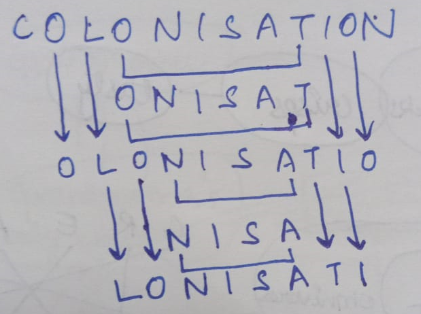 COLONISATION
ONISAT
OLONISATIO
NISA
LONISATI